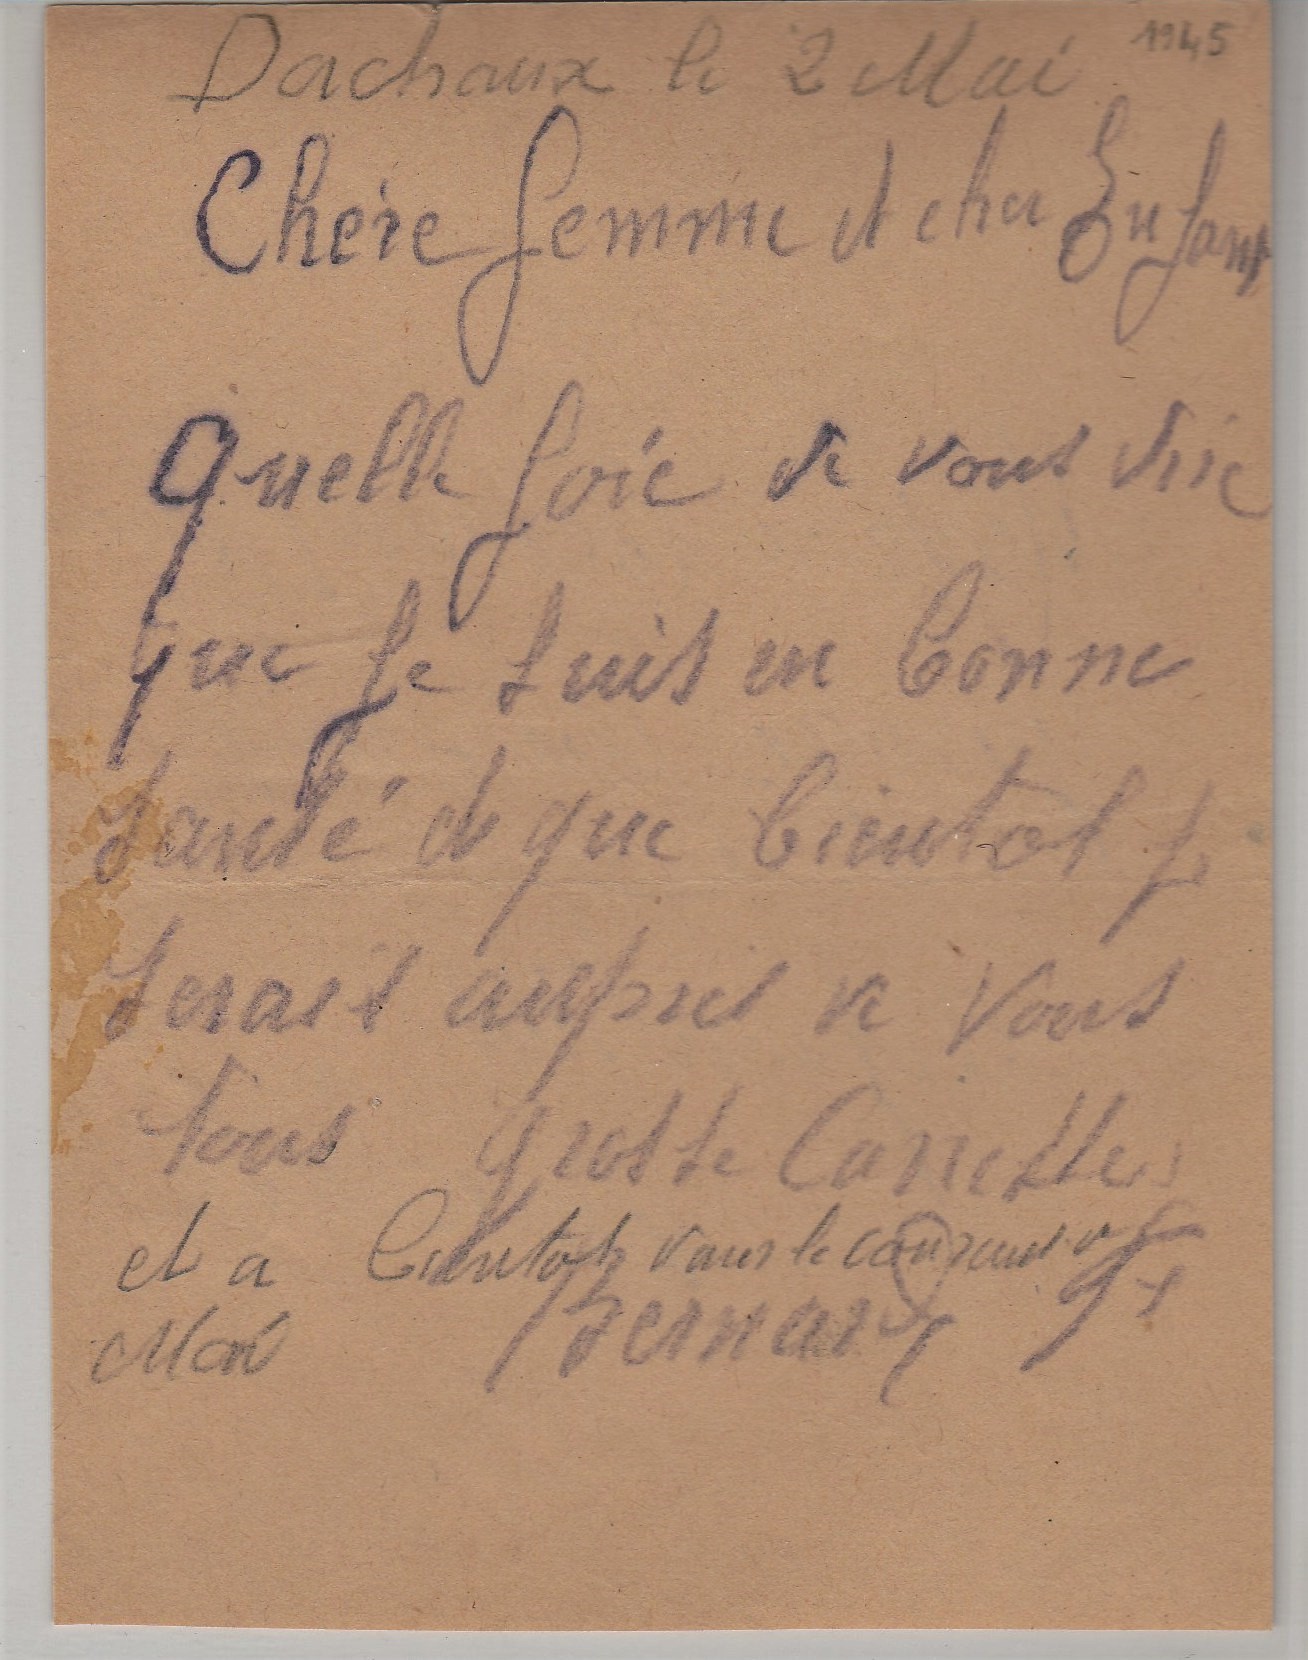 Dachaux le 2 Mai 1945
Chère femme et cher Enfant
Quelle joie de vous dire
que je suis en bonne
santé et que bientot je
serais auspres de vous
tous grosse Caresses
et a bientot vous le
Moi Bernard